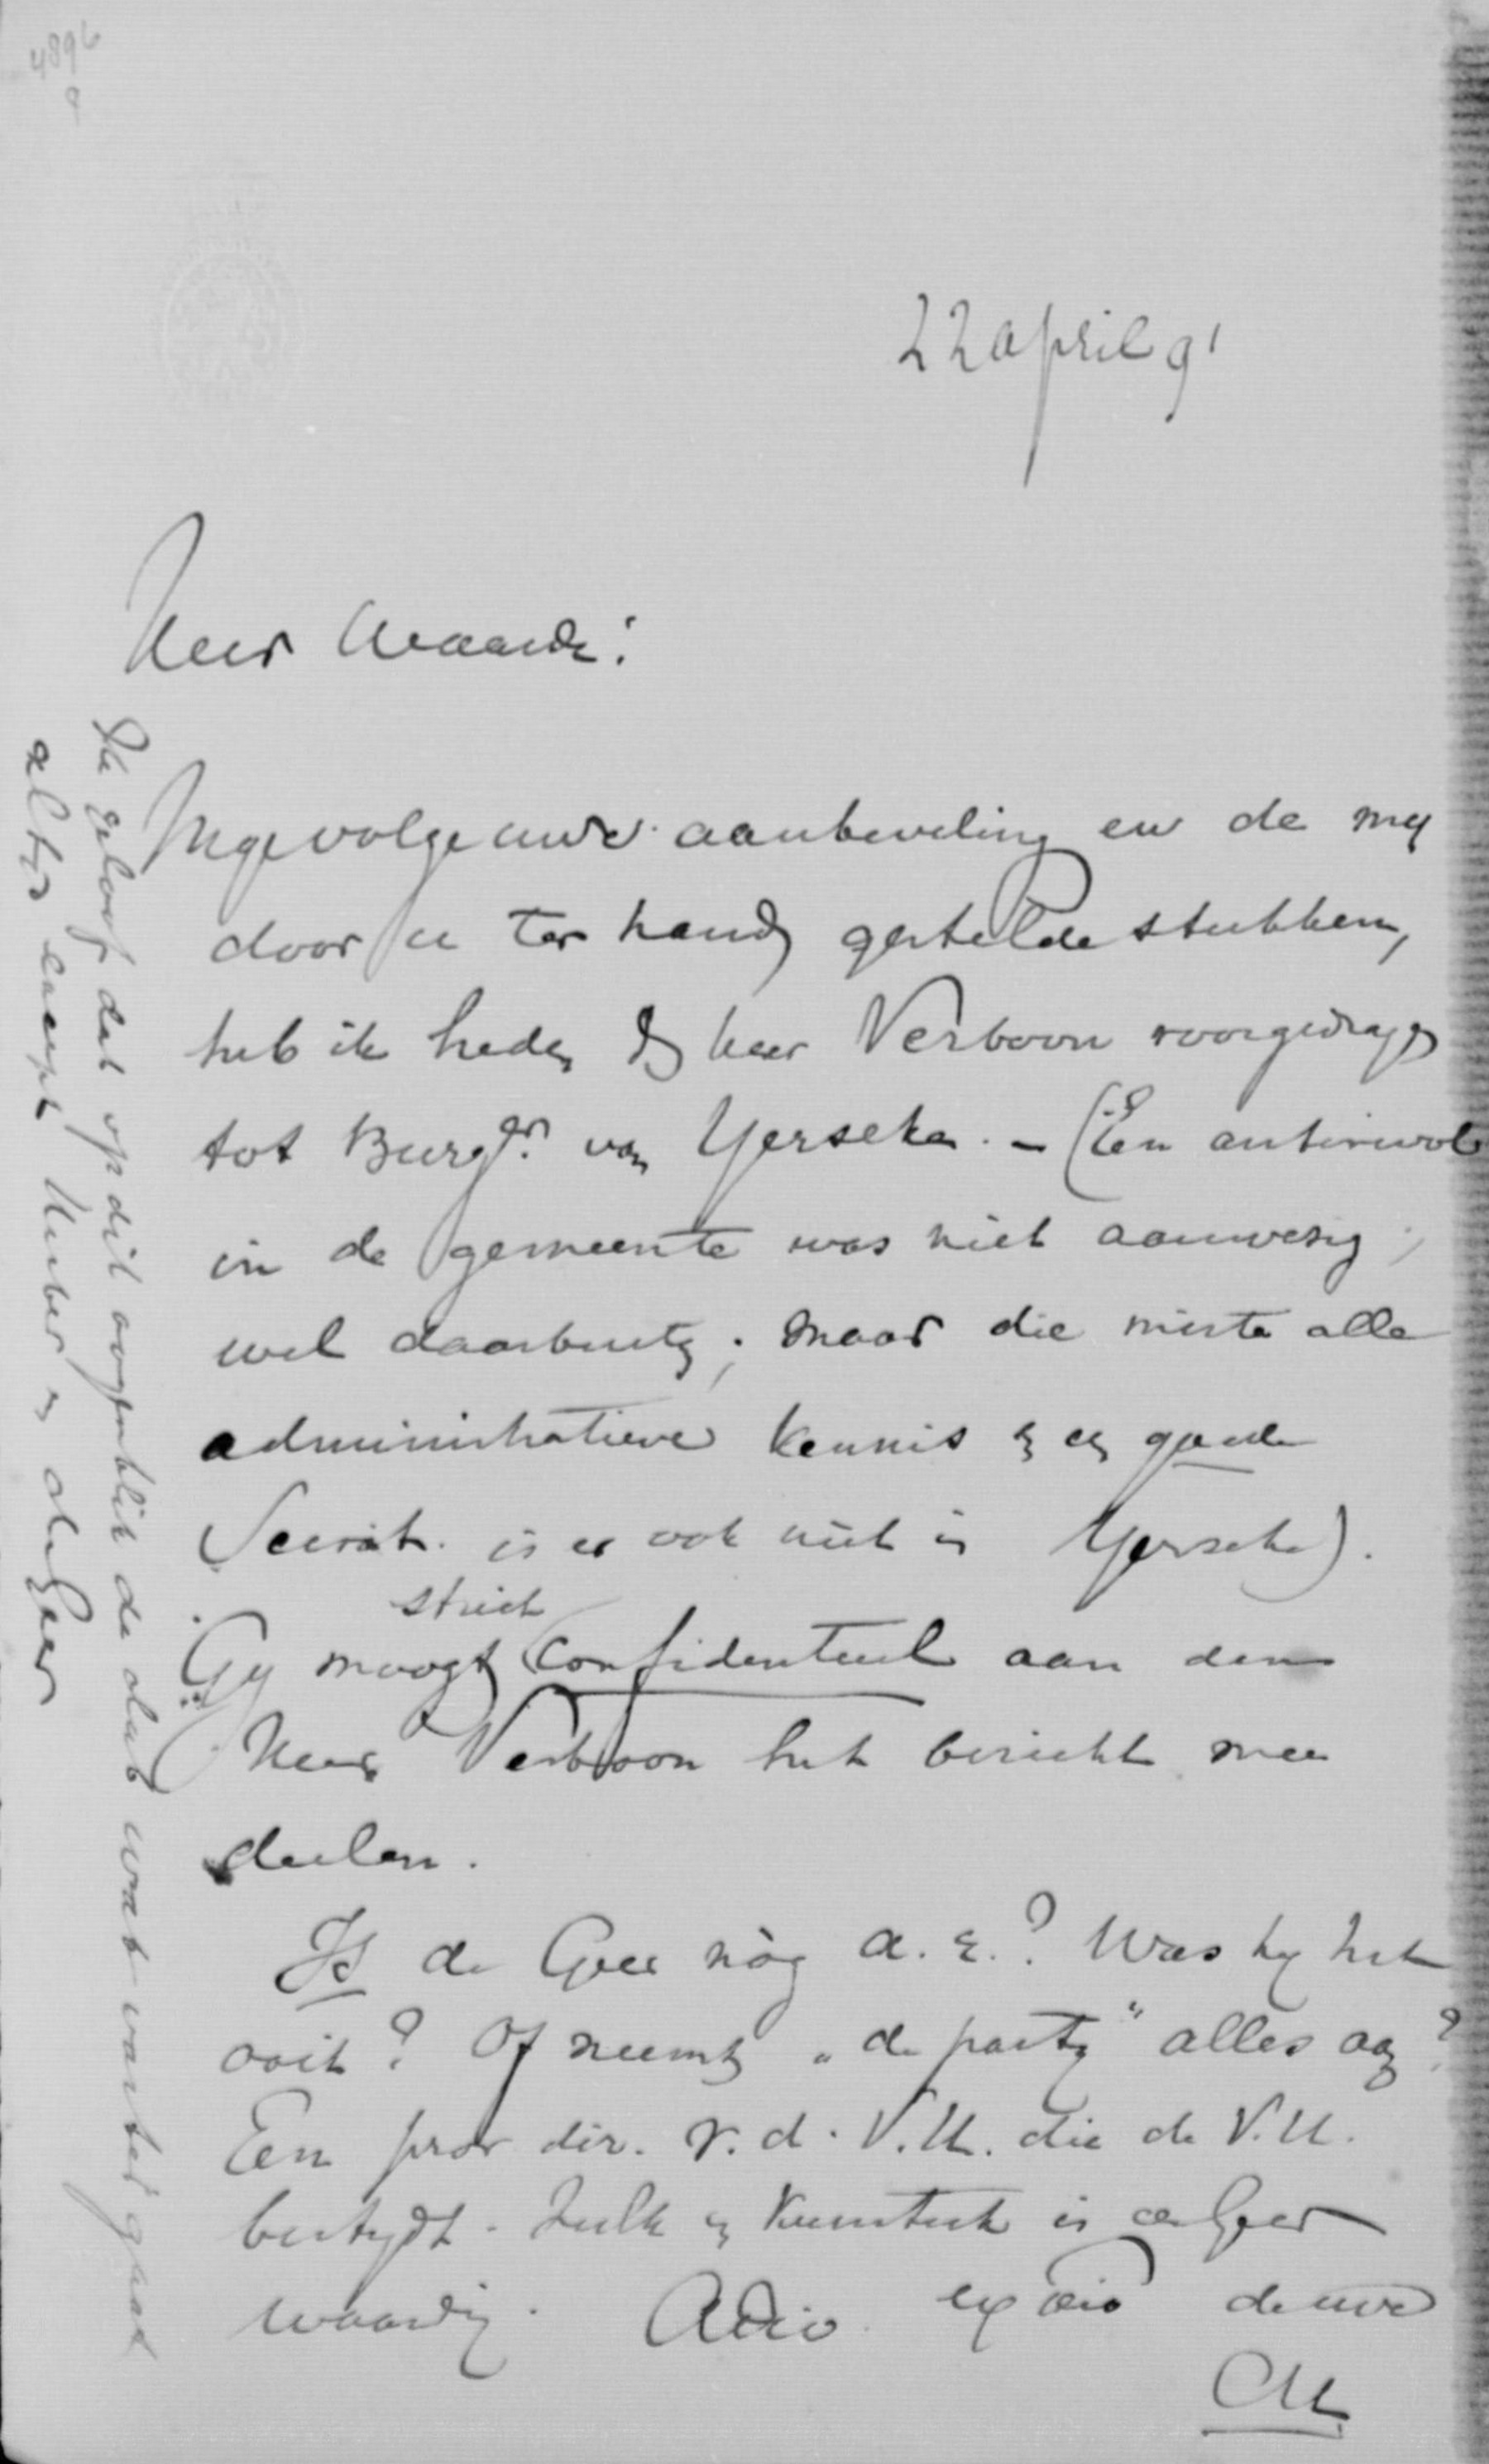 4896
22 april 91
Zeer Waarde!
Ingevolge uwe aanbeveling en de my
door u ter hand gestelde stukken,
heb ik heden de heer Verboon voorgedragen
tot Burgr. van Yerseke. - (Een antirevol
in de gemeente was niet aanwezig;
wel daarbuiten; maar die miste alle
administratieve kennis & een goede
Secret. is er ook niet in Yerseke).
strict
Gy moogt confidentieel aan den
Heer Verboon het bericht mee
deelen.
Is de Geer nòg a.r.? Was hy het
ooit? Of neemt "de party" alles aan?
Een pror dir. v.d. V.U. die de V.U.
bestrydt. Zulk een kunstuk is de Geer
waardig. Adio. de uwe
Ik geloof dat op dit oogenblik de club wat vaster gaat
altyd except Huber en de Geer